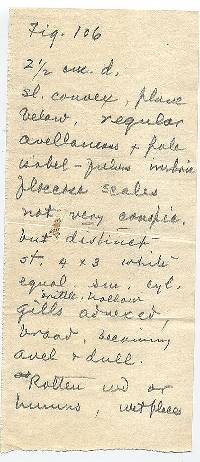 Fig. 106
2½ cm. d.
sl. convex, plane
below, regular
avellaneous + pale
isabel-
floccose scales
not very conspic.
but distinct
st. 4 x 3 white
equal. sm. cyl.
brittle, hollow
gills adnexed,
broad, becoming
avel + dull.
Rotten wd or
humus, wet places